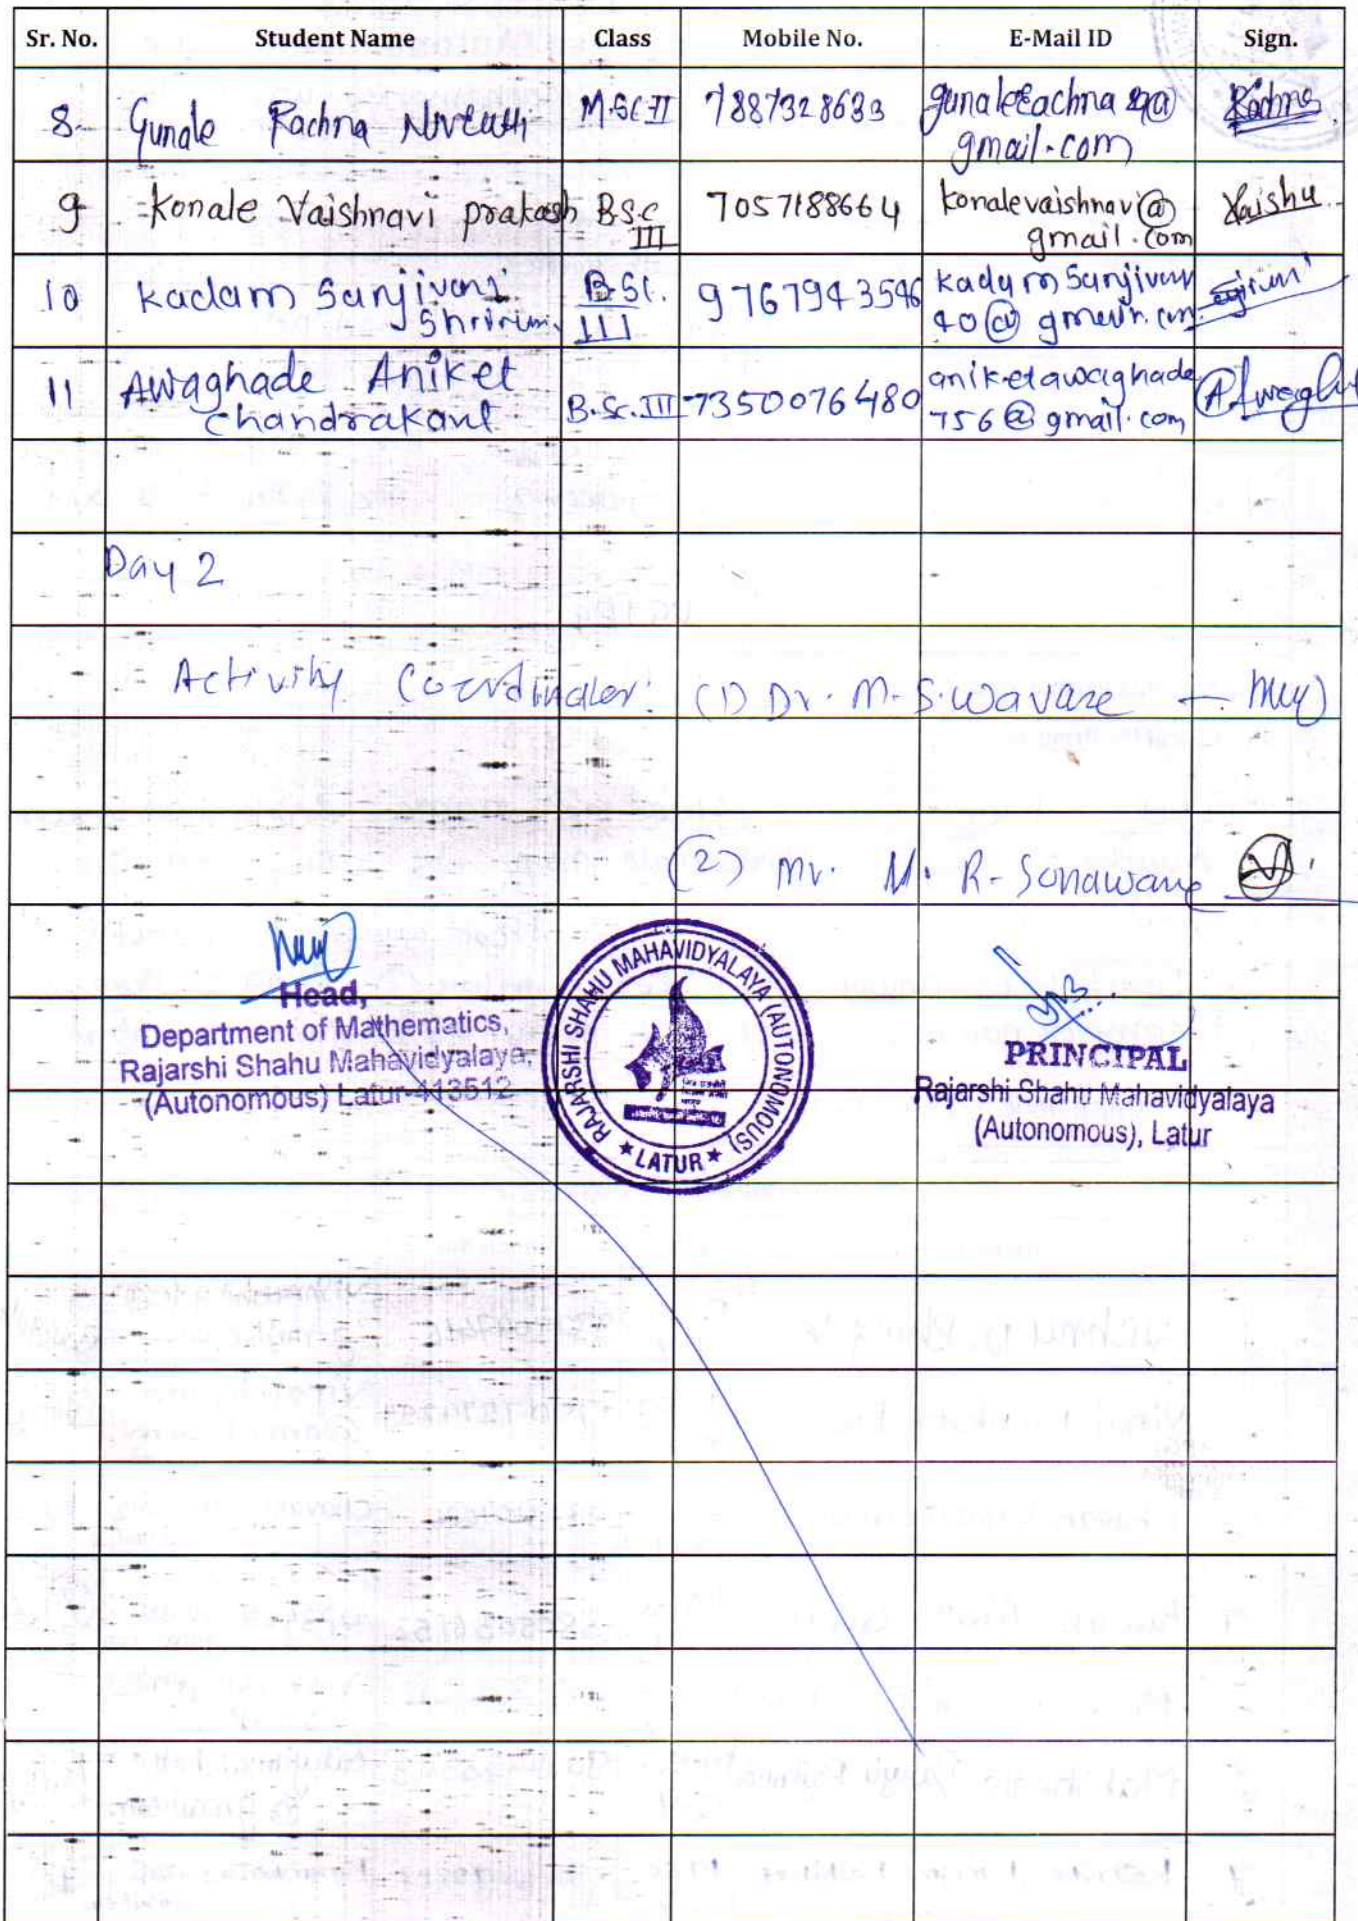 Sr. No. Student Name Class Mobile No. E-Mail ID Sign.
8 Gunale Rachna M.Sc-II 7887328633 gunale
gmail.com
9 Konale Vaishnavi prakash B.Sc 7057188664 konalevaishnavi@ Vaishu
III gmail.com
10 kadam Sanjivani B.Sc. 9767943546
III 40@
11 Awaghade Aniket B.Sc.III 7350076480 aniketawaghade
Chandrakant 756@gmail.com
Day 2
Activity Coordinator: (1) Dr. M. S. Wavare —
(2) Mr. M. R. Sonawane
Head,
Department of Mathematics,
Rajarshi Shahu Mahavidyalaya,
(Autonomous) Latur-413512
RAJARSHI SHAHU MAHAVIDYALAYA (AUTONOMOUS)
★ LATUR ★
PRINCIPAL
Rajarshi Shahu Mahavidyalaya
(Autonomous), Latur